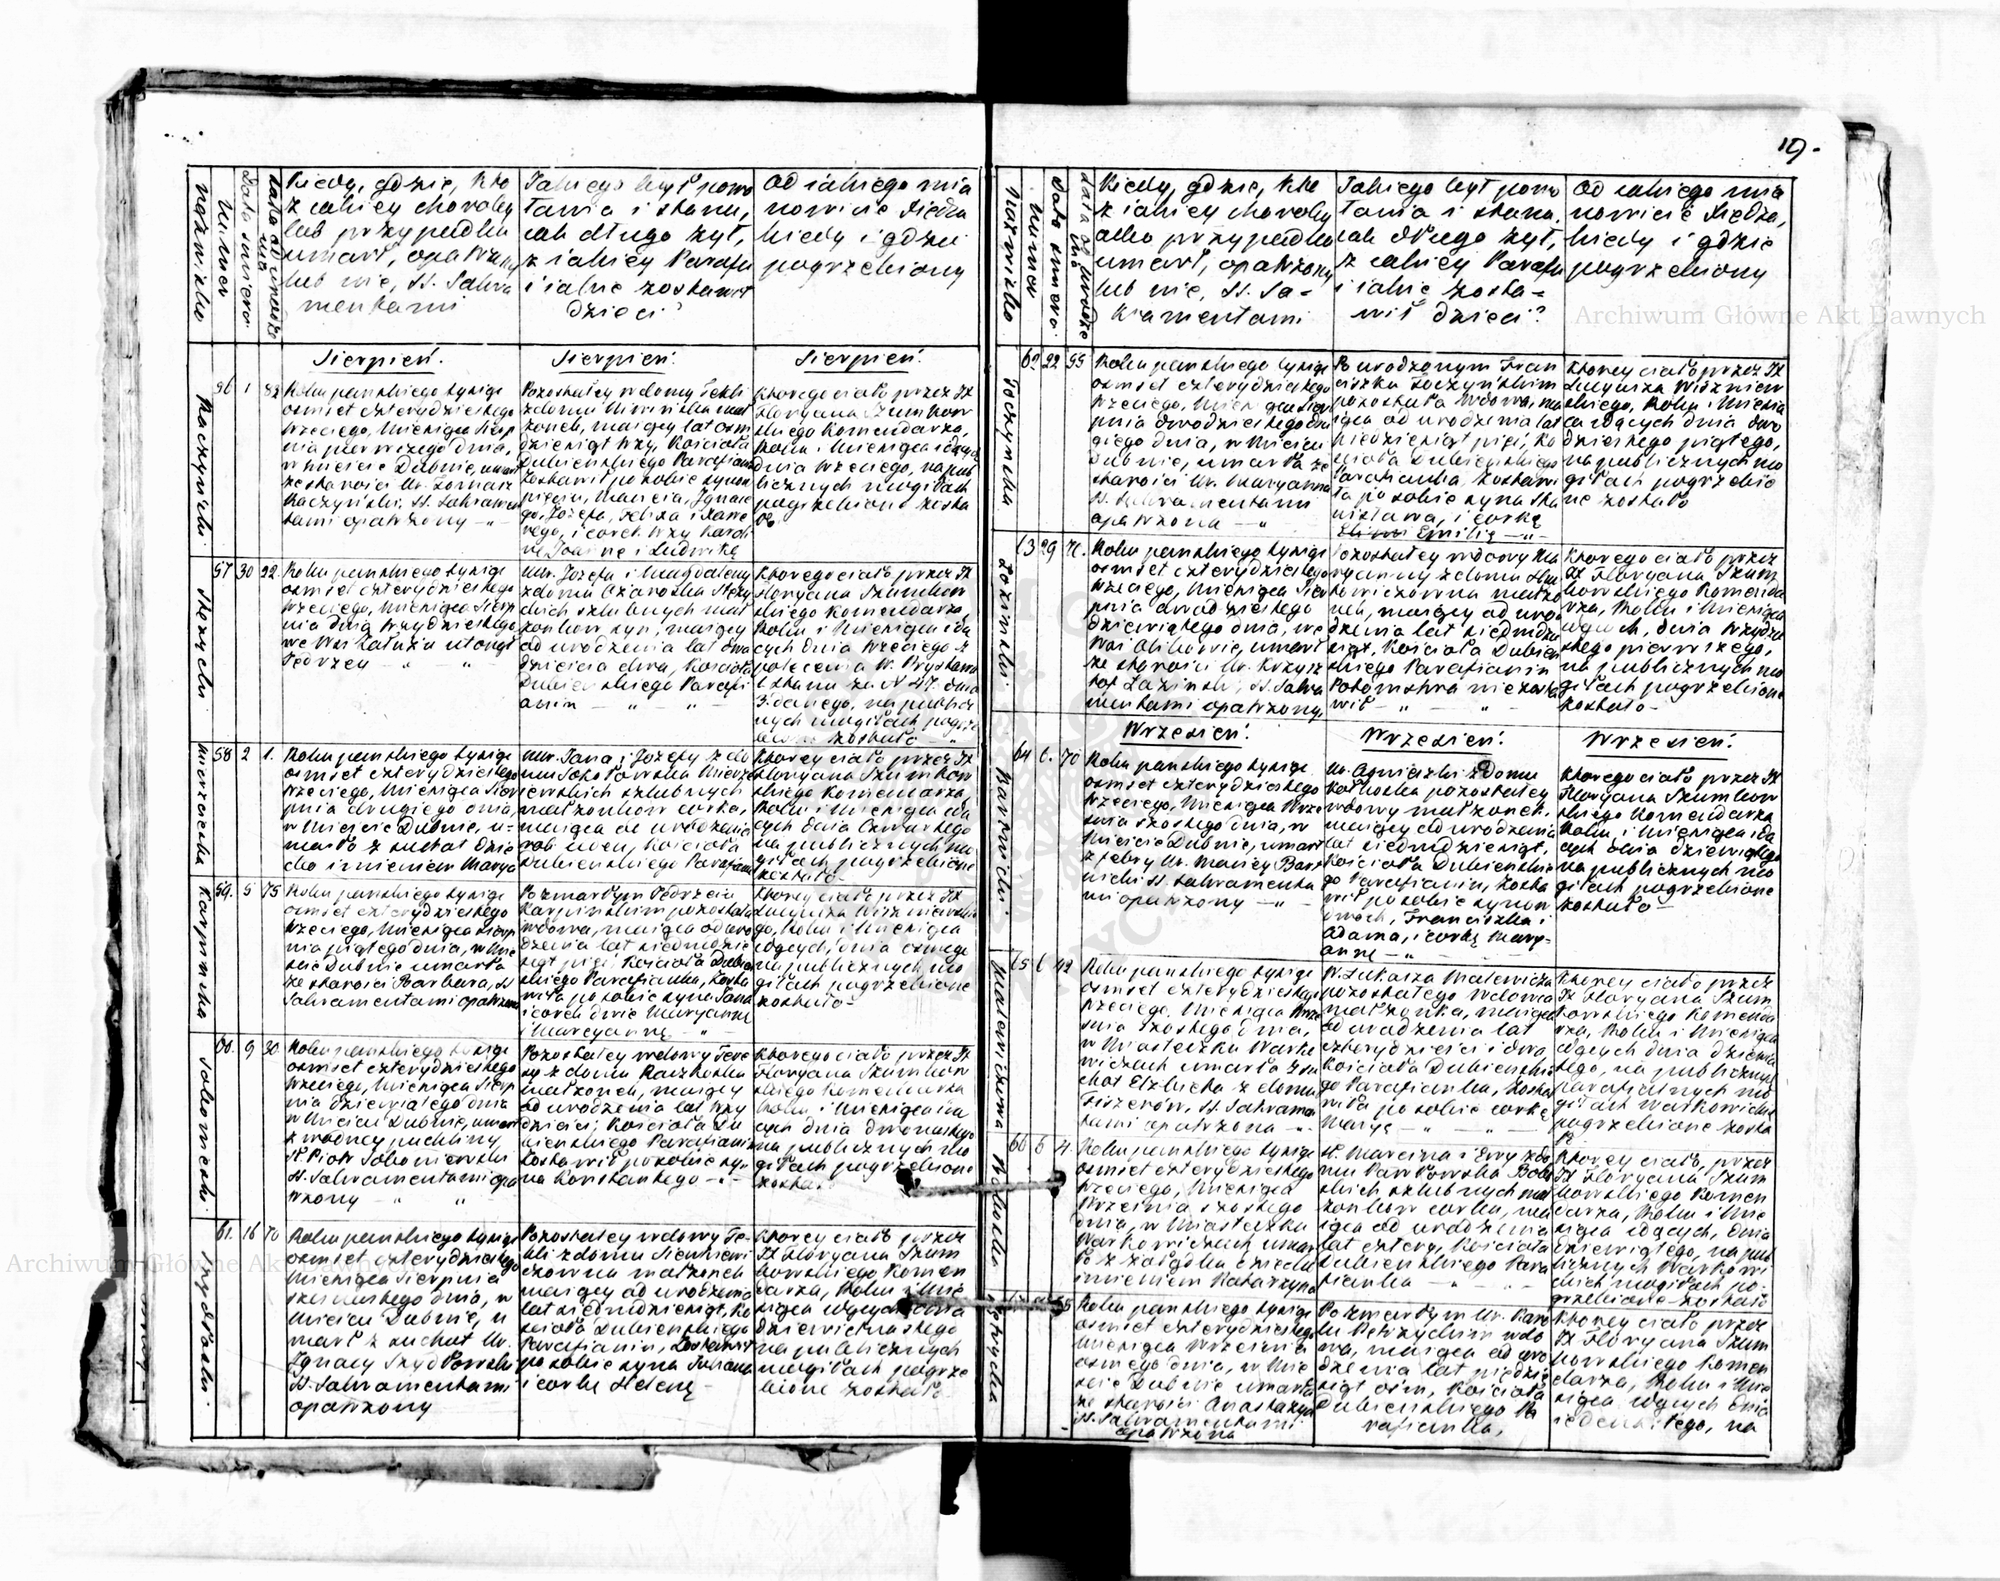 19.
Nazwisko
Numer
Data śmierci
Lata od urodze
nia
Kiedy, gdzie, kto
z jakiey choroby
lub przypadku
umarł, opatrzony
lub nie, SS. Sakra
mentami
Jakiego był powo
łania i stanu,
jak długo żył,
z jakiey Parafii
i jakie zostawił
dzieci
Od jakiego mia
nowicie Xiędza
kiedy i gdzie
pogrzebiony
Sierpień.
Sierpień.
Sierpień.
Raczyński
56 1 83
Roku pańskiego tysiąc
osmset czterydziestego
trzeciego, Miesiąca Sierp
nia pierwszego dnia,
w Mieście Dubnie, umarł
ze starości Ur. Tomasz
Raczyński, SS. Sakramen
tami opatrzony
Pozostałey wdowy Tekli
małżonek, maiący lat osm
dziesiąt trzy, Kościoła
Dubieńskiego Parafianin
Zostawił po sobie synow
pięciu, Macieia, Ignace
go, Józefa, Felixa i Xawe
rego, i corek trzy Karoli
nę Joannę i Ludwikę
Ktorego ciało przez JX
Floryana Szumkow
skiego Komendarza,
Roku i Miesiąca idących
dnia trzeciego, na pub
licznych mogiłach
pogrzebione zosta
ło.
57 30 22.
Roku pańskiego tysiąc
osmset czterydziestego
trzeciego, Miesiąca Sierp
nia dnia trzydziestego
we Wsi utonął
Jędrzey
Ur. Józefa i Magdaleny
małżonkow syn, maiący
od urodzenia lat dwa
dzieścia dwa, Kościoła
Dubieńskiego Parafi
anin
Ktorego ciało przez JX
Floryana Szumkow
skiego Komendarza,
Roku i Miesiąca idą
cych dnia trzeciego z
polecenia W. Prystawa
na publicz
nych mogiłach pogrze
bione zostało
Mierzwicka
58 2 1.
Roku pańskiego tysiąc
osmset czterydziestego
trzeciego, Miesiąca Sierp
nia drugiego dnia,
w Mieście Dubnie, u=
marło z suchot dzie
cko imieniem Marya
Ur. Jana i Józefy z do
mu Sokołowska
małżonkow corka,
maiąca od urodzenia
rok ieden, Kościoła
Dubieńskiego Parafianka
Ktorey ciało przez JX
Floryana Szumkow
skiego Komendarza,
Roku i Miesiąca idą
cych dnia Czwartego
na publicznych mo
giłach pogrzebione
zostało
Karpińska
59. 5 75
Roku pańskiego tysiąc
osmset czterydziestego
trzeciego, Miesiąca Sierp
nia piątego dnia, w Mie
ście Dubnie umarła
ze starości Barbara, SS
Sakramentami opatrzona
Po zmarłym Jędrzeiu
Karpińskim pozostała
wdowa, maiąca od uro
dzenia lat siedmdzie
siąt pięć, Kościoła Dubie
ńskiego Parafianka, Zosta
wiła po sobie syna Jana
i corek dwie Maryannę
i Marcyannę
Ktorey ciało przez JX
Lucyusza Wiszniewskie
go, Roku i Miesiąca
idących, dnia osmego
na publicznych mo
giłach pogrzebione
zostało
60. 9 30.
Roku pańskiego tysiąc
osmset czterydziestego
trzeciego, Miesiąca Sierp
nia dziewiątego dnia
w Mieście Dubnie, umarł
z wodney puchliny,
SS. Sakramentami opa
trzony
Pozostałey wdowy Tere
sy z domu Raczkoska
małżonek, maiący
od urodzenia lat trzy
dzieści, Kościoła Du
bieńskiego Parafianin
Zostawił po sobie sy=
na Konstantego
Ktorego ciało przez JX
Floryana Szumkow
skiego Komendarza
Roku i Miesiąca idą
cych dnia dwunastego
na publicznych mo
giłach pogrzebione
zostało
Szydłoski
61. 16 70
Roku pańskiego tysiąc
osmset czterydziestego
Miesiąca Sierpnia
szesnastego dnia, w
Mieście Dubnie, u
marł z suchot Ur.
Ignacy Szydłowski
SS. Sakramentami
opatrzony
Pozostałey wdowy Te=
kli z domu Sienkiewi
czowna małżonek
maiący od urodzenia
lat siedmdziesiąt, Ko
ścioła Dubieńskiego
Parafianin, Zostawił
po sobie syna Juliana
i corkę Helenę
Ktorey ciało przez
JX Floryana Szum
kowskiego Komen
darza, Roku i Mie
siąca idących dnia
dziewiętnastego
na publicznych
mogiłach pogrze
bione zostało
Nazwisko
Numer
Data śmierci
Lata od urodze
nia
Kiedy, gdzie, kto
z jakiey choroby
albo przypadku
umarł, opatrzony
lub nie, SS. Sa=
kramentami
Jakiego był powo
łania i stanu,
jak długo żył,
z jakiey Parafii
i jakie zosta=
wił dzieci?
Od jakiego mia
nowicie Xiędza,
kiedy i gdzie
pogrzebiony
Toczyńska
62 22 95
Roku pańskiego tysiąc
osmset czterydziestego
trzeciego, Miesiąca Sierp
pnia dwudziestego dru
giego dnia, w Mieście
Dubnie, umarła ze
starości Ur. Maryanna
SS. Sakramentami
opatrzona
Po urodzonym Fran
ciszku Toczyńskim
pozostała wdowa, ma
iąca od urodzenia lat
dziewiędziesiąt pięć, Ko
ścioła Dubieńskiego
Parafianka, zostawi
ła po sobie syna Sta
nisława, i corkę
Emilię
Ktorey ciało przez JX
Lucyusza Wiszniew
skiego, Roku i Miesią
ca idących dnia dwu
dziestego piątego,
na publicznych mo
giłach pogrzebio
ne zostało
Łoziński
63 29 70.
Roku pańskiego tysiąc
osmset czterydziestego
trzeciego, Miesiąca Sier
pnia dwudziestego
dziewiątego dnia, we
Wsi umarł
ze starości Ur. Krzysz
tof Łoziński, SS. Sakra
mentami opatrzony,
Pozostałey wdowy Ma
ryanny z domu
małżo
nek, maiący od uro
dzenia lat siedmdzie
siąt, Kościoła Dubień
skiego Parafianin
Potomstwa nie zosta
wił
Ktorego ciało przez
JX Floryana Szum
kowskiego Komenda
rza, Roku i Miesiąca
idących, dnia trzydzie
stego pierwszego,
na publicznych mo
giłach pogrzebione
zostało
Wrzesień.
Wrzesień.
Wrzesień.
Bartnicki
64 6. 70
Roku pańskiego tysiąc
osmset czterydziestego
trzeciego, Miesiąca Wrze
śnia szostego dnia, w
Mieście Dubnie, umarł
z febry Ur. Maciey Bart
nicki SS. Sakramenta
mi opatrzony
Ur. Agnieszki z domu
pozostałey
wdowy małżonek.
maiący od urodzenia
lat siedmdziesiąt,
Kościoła Dubieńskie
go Parafianin, Zosta
wił po sobie synow
dwoch, Franciszka i
Adama, i corkę Mary=
annę
Ktorego ciało przez JX
Floryana Szumkow
skiego Komendarza
Roku i Miesiąca idą
cych dnia dziewiątego
na publicznych mo
giłach pogrzebione
zostało
Malewiczowa
65 6 42
Roku pańskiego tysiąc
osmset czterydziestego
trzeciego, Miesiąca Wrze
śnia szostego dnia,
w Miasteczku Warko
wiczach umarła z su
chot Elżbieta z domu
Fiszerów, SS. Sakramen
tami opatrzona
W. Łukasza Malewicza
pozostałego wdowca
małżonka, maiąca
od urodzenia lat
czterydzieści i dwa
Kościoła Dubieńskie
go Parafianka, Zosta
wiła po sobie corkę
Maryę
Ktorey ciało przez
JX Floryana Szum
kowskiego Komenda
rza, Roku i Miesiąca
idących dnia dziewią
tego, na publicznych
parafialnych mo
giłach Warkowickich
pogrzebione zosta
ło
66 6 4.
Roku pańskiego tysiąc
osmset czterydziestego
trzeciego, Miesiąca
Września szostego
dnia, w Miasteczku
Warkowiczach umar
ło dziecko
imieniem Katarzyna
W. Marcina i Ewy z do
mu Pawłowska
małżonkow corka, ma
iąca od urodzenia
lat cztery, Kościoła
Dubieńskiego Para
fianka
Ktorey ciało, przez
JX Floryana Szum
kowskiego Komen
darza, Roku i Mie
siąca idących, dnia
dziewiątego, na pub
licznych Warkowi
ckich mogiłach po=
grzebione zostało
Pietrzycka
Roku pańskiego tysiąc
osmset czterydziestego
Miesiąca Września
osmego dnia, w Mie
ście Dubnie umarła
ze starości Anastazya
SS. Sakramentami
opatrzona
Po zmarłym Ur. Karo
lu Pietrzyckim wdo
wa, maiąca od uro
dzenia lat pięćdzie
siąt ośm, Kościoła
Dubieńskiego Pa
rafianka,
Ktorey ciało przez
JX Floryana Szum
kowskiego Komen
darza, Roku i Mie
siąca idących dnia
iedenastego, na
Archiwum Główne Akt Dawnych
Archiwum Główne Akt Dawnych